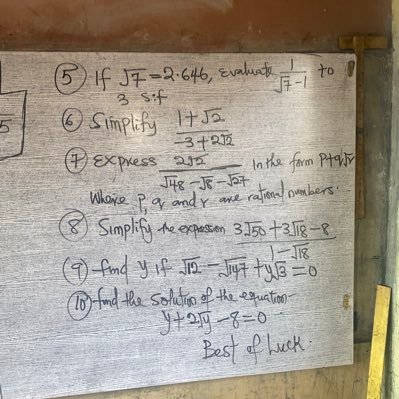 ⑤ If √7 = 2.646, evaluate 1/(√7-1) to
3 s.f
5
⑥ Simplify (1+√2)/(-3+2√2)
⑦ Express 2√2/(√48-√8-√27) in the form p+q√r
Where p, q and r are rational numbers.
⑧ Simplify the expression (3√50+3√18-8)/(1-√18)
⑨ find y if √12-√147+y√3=0
⑩ find the solution of the equation
y+2√y-8=0
Best of Luck.